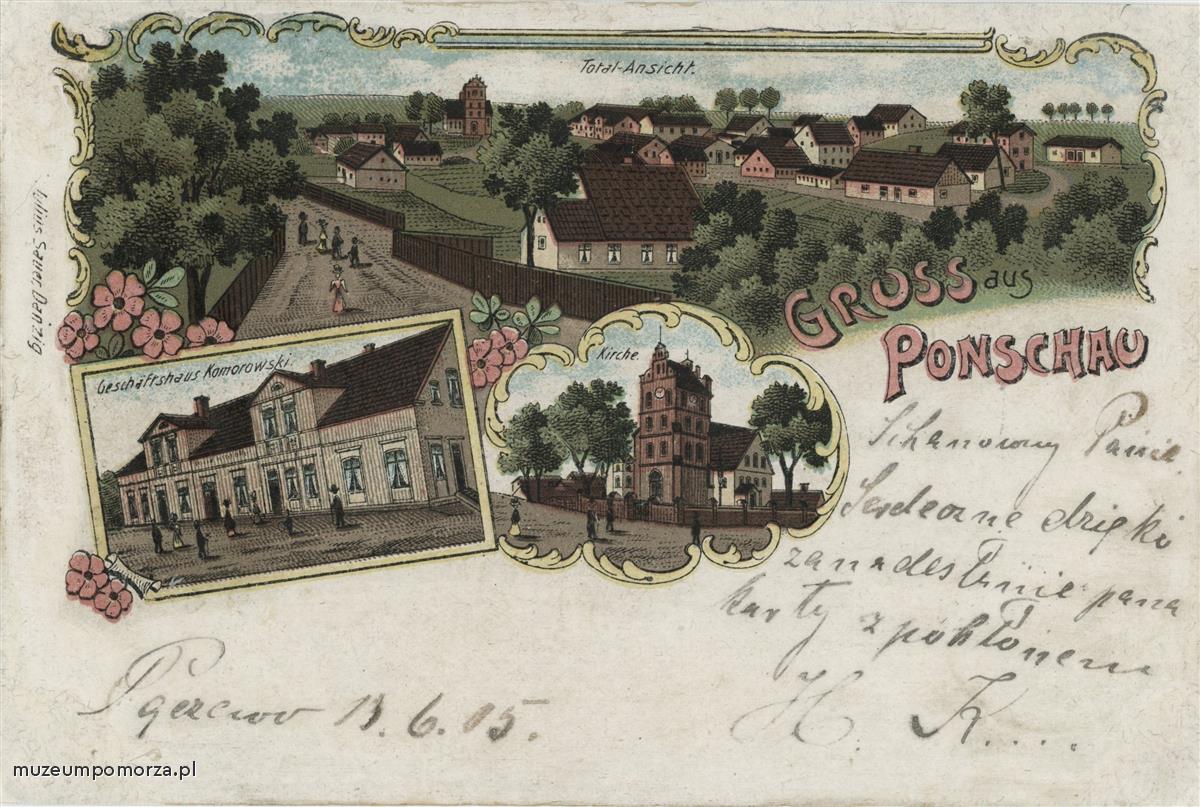 Total-Ansicht.
Julius Sauer Danzig
GRUSS aus
PONSCHAU
Geschäftshaus Komorowski.
Kirche.
Schanowny Panie.
Serdeczne dzięki
za nadesłanie pana
karty z pokłonem
H. K....
13.6.05.
muzeumpomorza.pl